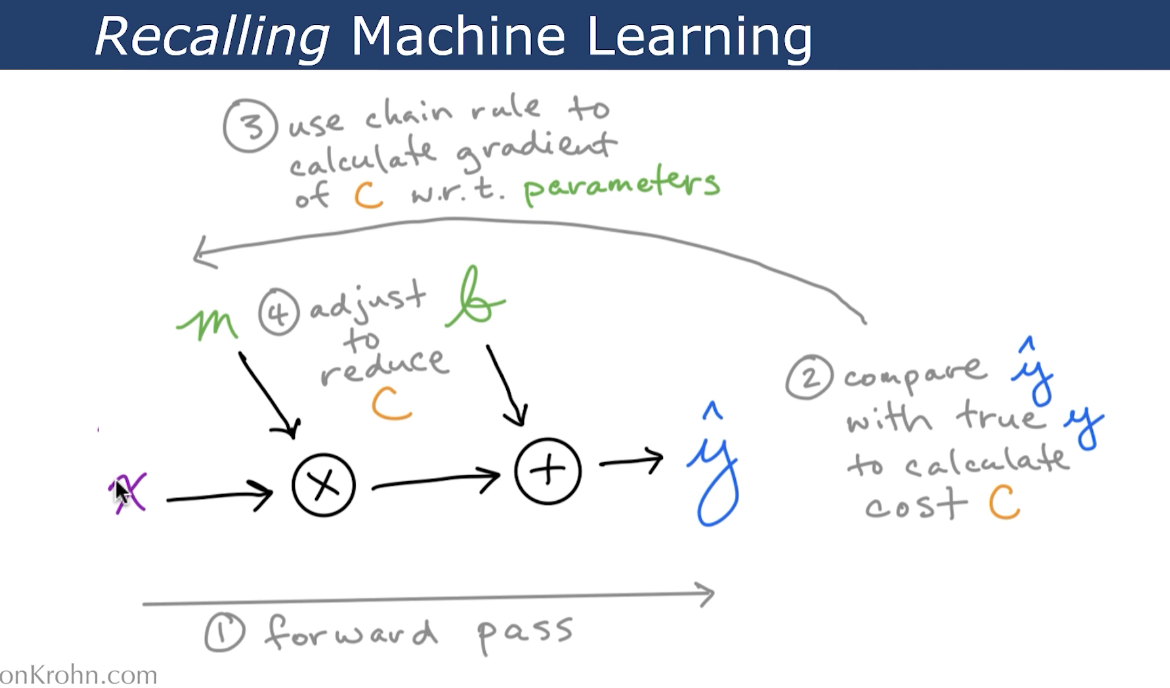 Recalling Machine Learning
③ use chain rule to
calculate gradient
of C w.r.t. parameters
m
④ adjust
to
reduce
C
b
② compare ŷ
with true y
to calculate
cost C
x
×
+
ŷ
① forward pass
onKrohn.com